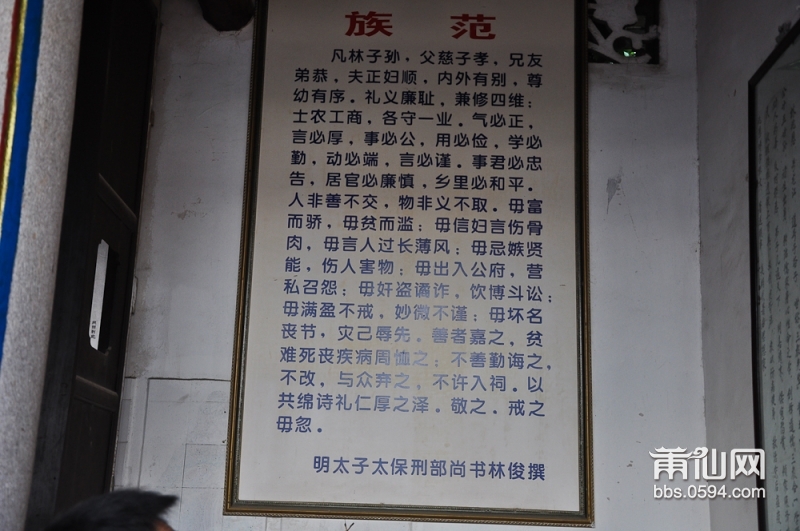 族 范
凡林子孙，父慈子孝，兄友
弟恭，夫正妇顺，内外有别，尊
幼有序。礼义廉耻，兼修四维；
士农工商，各守一业。气必正，
言必厚，事必公，用必俭，学必
勤，动必端，言必谨。事君必忠
告，居官必廉慎，乡里必和平。
人非善不交，物非义不取。毋富
而骄，毋贫而滥；毋信妇言伤骨
肉，毋言人过长薄风；毋忌嫉贤
能，伤人害物；毋出入公府，营
私召怨；毋奸盗谲诈，饮博斗讼；
毋满盈不戒，妙微不谨；毋坏名
丧节，灾己辱先。善者嘉之，贫
难死丧疾病周恤之；不善勤诲之，
不改，与众弃之，不许入祠。以
共绵诗礼仁厚之泽。敬之。戒之
毋忽。
明太子太保刑部尚书林俊撰
莆仙网
bbs.0594.com